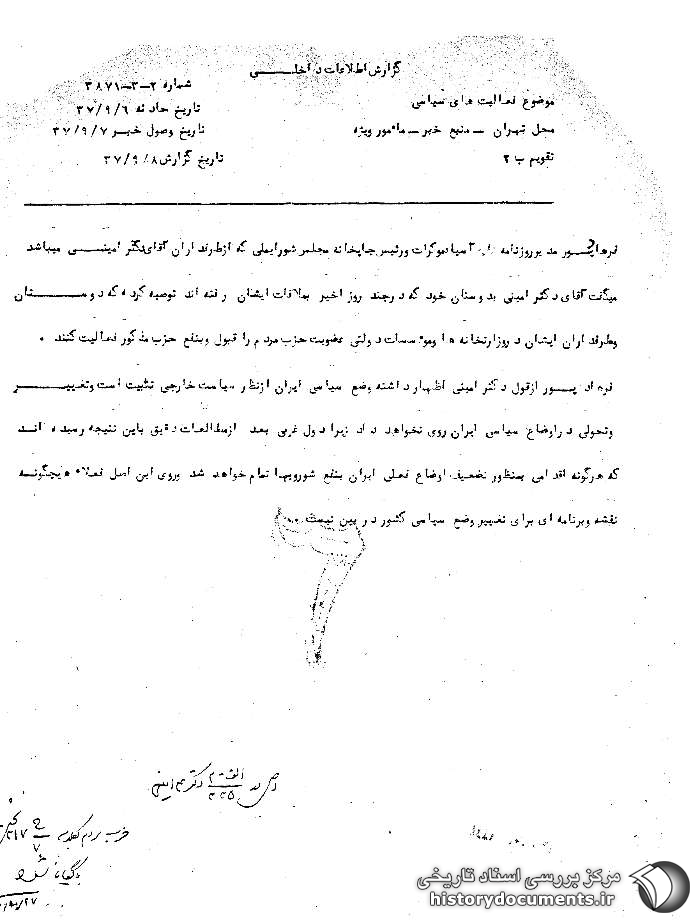 گزارش اطلاعات داخلـــــی
شماره ۲-۳-۳۸۷۱
موضوع فعالیت های سیاسی
تاریخ حادثه ۳۷/۹/۶
محل تهران – منبع خبر – مامور ویژه
تاریخ وصول خبر ۳۷/۹/۷
تقویم ب ۲
تاریخ گزارش ۳۷/۹/۸
فرهادپور مدیر روزنامه آسیا دموکرات ورئیس چاپخانه مجلس شورایملی که ازطرفداران آقای دکتر امینـــی میباشد
میگفت آقای دکتر امینی بدوستان خود که درچند روز اخیر بملاقات ایشان رفته اند توصیه کرده که دوســـتان
وطرفداران ایشان دروزارتخانه ها وموسسات دولتی عضویت حزب مردم را قبول وبنفع حزب مذکور فعالیت کنند .
فرهادپــور ازقول دکتر امینی اظهار داشته وضع سیاسی ایران ازنظر سیاست خارجی تثبیت است وتغییـــر
وتحولی دراوضاع سیاسی ایران روی نخواهد داد زیرا دول غربی بعد ازمطالعات دقیق باین نتیجه رسیده انـد
که هرگونه اقدامی بمنظور تضعیف اوضاع فعلی ایران بنفع شورویها تمام خواهد شد وروی این اصل فعلا هیچگونـه
نقشه وبرنامه ای برای تغییر وضع سیاسی کشور در بین نیست .
دکتر امینی
حزب مردم
مرکز بررسی اسناد تاریخی
historydocuments.ir